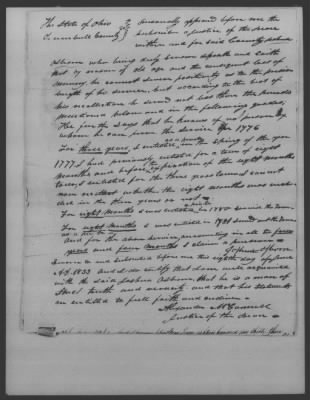 The State of Ohio } Personally appeared before me the
Trumbull County } subscriber a Justice of the peace
within and for said County Joshua
Osborn who being duly sworn deposeth and saith
that by reason of old age and the consequent loss of
memory he cannot swear positively as to the precise
length of his service, but according to the best of
his recollection he served not less than the periods
mentioned below and in the following grades,
He further says that he knows of no person by
whom he can prove the service for 1776
For three years, I enlisted in the spring of the year
1777 I had previously enlisted for a term of eight
months and before the expiration of the eight months
tour, I enlisted for the three years and cannot
now recollect whether the eight months was included
in the three years or not
For eight months I was enlisted in 1780 served
For eight months I was enlisted in 1781 served
as a private
And for the above service, amounting in all to four
years and four months I claim a pension
Joshua Osborn
Sworn to and subscribed before me this eighth day of June
A.D. 1833 and I do certify that I am well acquainted
with the said Joshua Osborn that he is a man of
strict truth and veracity and that his statements
are entitled to full faith and credence
Alexander McConnell
Justice of the Peace